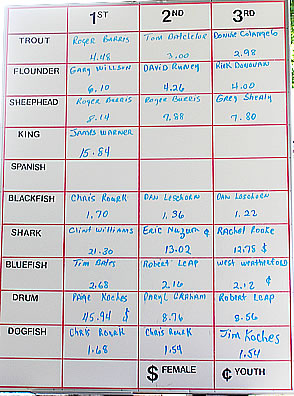 1ST 2ND 3RD
TROUT Roger Burris Tom Donnie Colangelo
4.48 3.00 2.98
FLOUNDER Gary Willson David Runey Rick Donovan
6.10 4.26 4.00
SHEEPHEAD Roger Burris Roger Burris Greg Shealy
8.14 7.88 7.80
KING James Warner
15.84
SPANISH
BLACKFISH Chris Rourk Dan Leschorn Dan Leschorn
1.70 1.36 1.22
SHARK Clint Williams Eric ¢ Rachel Rooke
21.30 13.02 12.78 $
BLUEFISH Tim Bates Robert Leap West Weatherford
2.68 2.16 2.12 ¢
DRUM Paige Koches Daryl Graham Robert Leap
45.94 $ 8.76 8.56
DOGFISH Chris Rourk Chris Rourk Jim Koches
1.68 1.54 1.54
$ FEMALE ¢ YOUTH